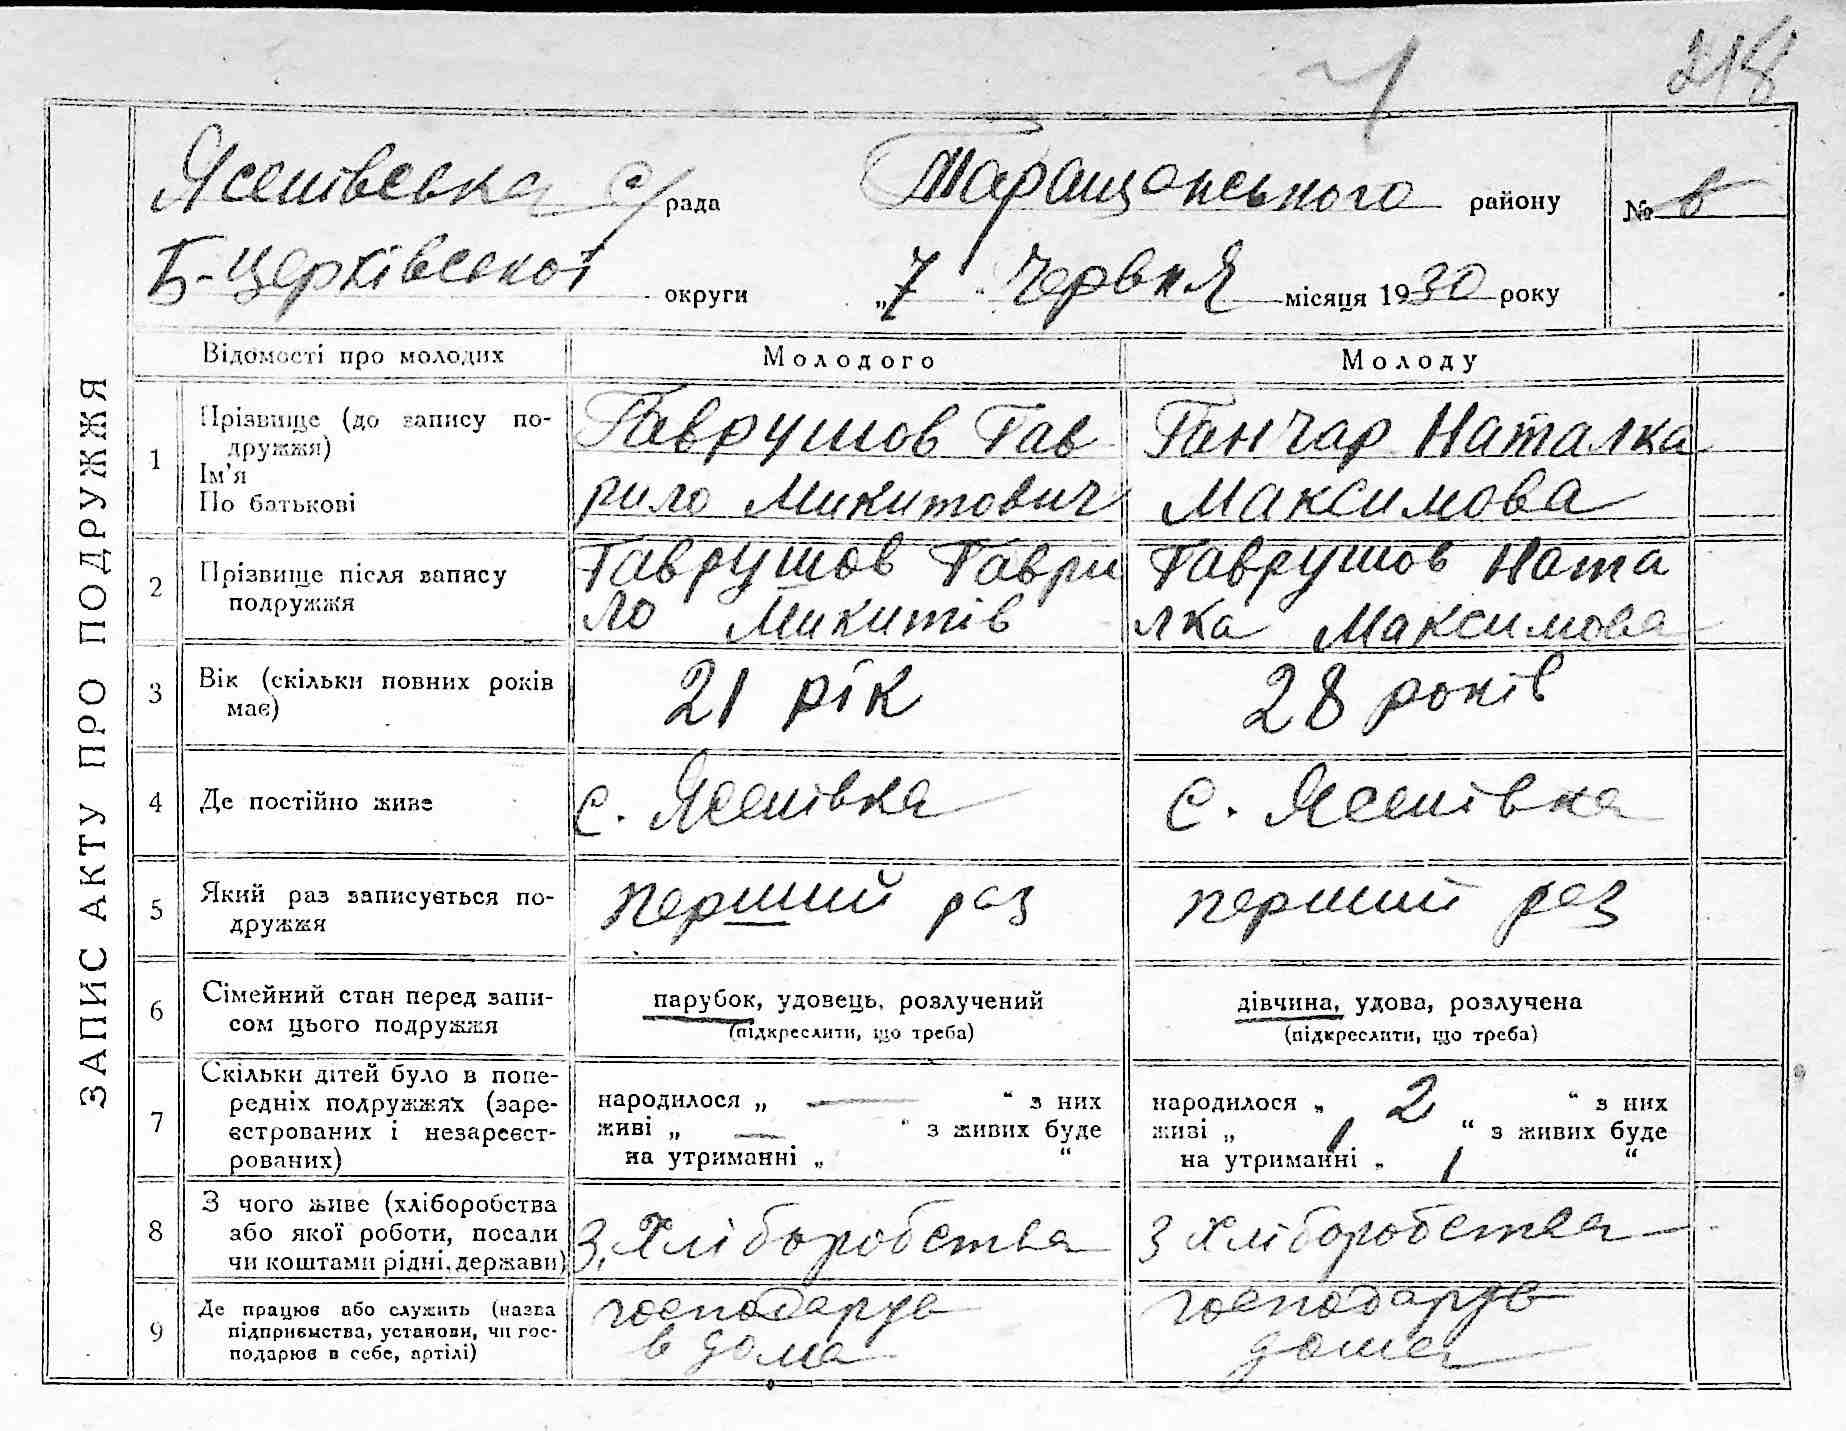 218
ЗАПИС АКТУ ПРО ПОДРУЖЖЯ
Ясенівська с/рада Таращанського району № 6
Б-Церківської округи „7 Червня місяця 1930 року
Відомості про молодих Молодого Молоду
1 Прізвище (до запису по-
дружжя)
Ім'я
По батькові
Гаврушов Гав
рило Микитович
Ганчар Наталка
Максимова
2 Прізвище після запису
подружжя
Гаврушов Гаври
ло Микитів
Гаврушов Ната
лка Максимова
3 Вік (скільки повних років
має)
21 рік
28 років
4 Де постійно живе
с. Ясенівка
с. Ясенівка
5 Який раз записується по-
дружжя
перший раз
перший раз
6 Сімейний стан перед запи-
сом цього подружжя
парубок, удовець, розлучений
(підкреслити, що треба)
дівчина, удова, розлучена
(підкреслити, що треба)
7 Скільки дітей було в попе-
редніх подружжях (заре-
єстрованих і незареєст-
рованих)
народилося „ — “ з них
живі „ — “ з живих буде
на утриманні „ “
народилося „ 2 “ з них
живі „ 1 “ з живих буде
на утриманні „ 1 “
8 З чого живе (хліборобства
або якої роботи, посади
чи коштами рідні, держави)
З, Хліборобства
З Хліборобства
9 Де працює або служить (назва
підприємства, установи, чи гос-
подарює в себе, артілі)
господарує
в дома
господарує
дома